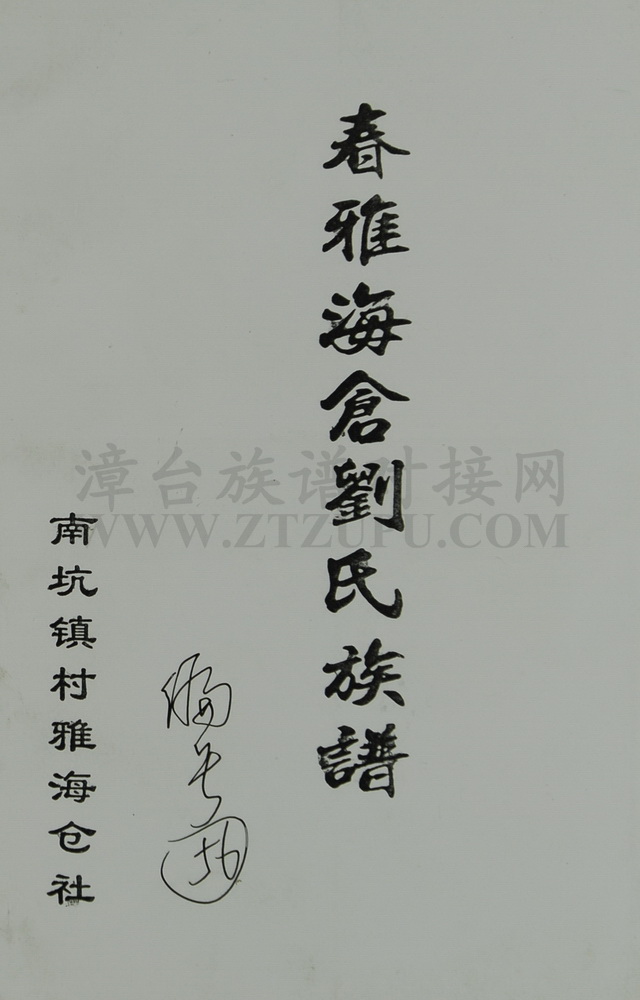 春雅海倉劉氏族譜
南坑镇村雅海仓社
漳台族谱对接网
WWW.ZTZUFU.COM